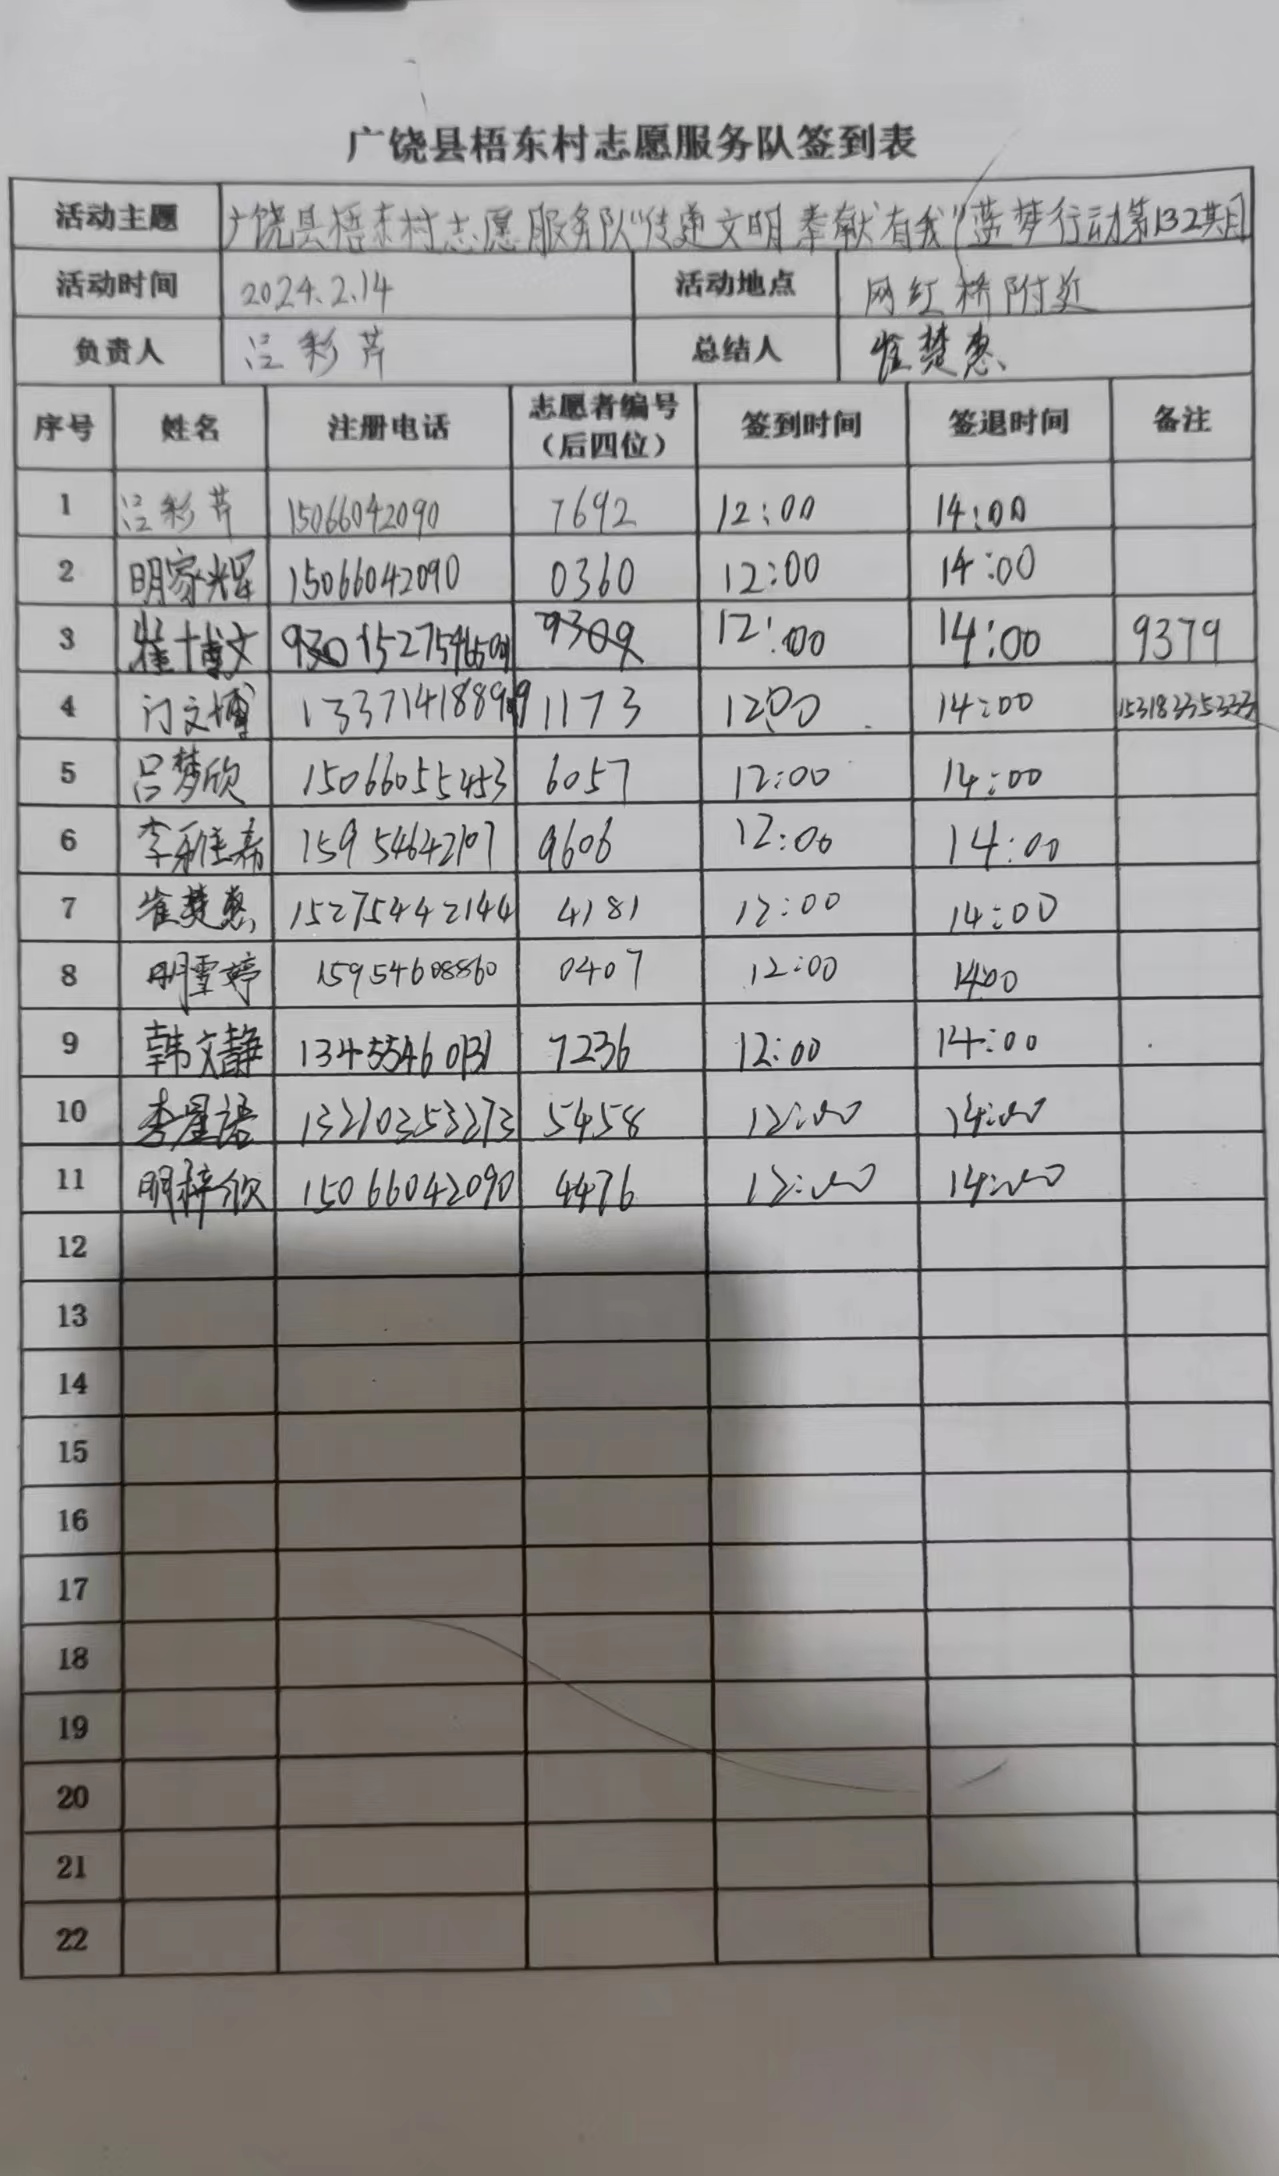 广饶县梧东村志愿服务队签到表
活动主题 广饶县梧东村志愿服务队“传递文明 奉献有我”蓝梦行动第132期
活动时间 2024.2.14 活动地点 网红桥附近
负责人 吕彩芹 总结人 崔楚惠
序号 姓名 注册电话 志愿者编号（后四位） 签到时间 签退时间 备注
1 吕彩芹 15066042090 7692 12:00 14:00
2 明家辉 15066042090 0360 12:00 14:00
3 崔博文 12:00 14:00 9379
4 门文博 1173 12:00 14:00 15318335333
5 吕梦欣 15066055453 6057 12:00 14:00
6 李雅嘉 15954642107 9606 12:00 14:00
7 崔楚惠 15275442144 4181 12:00 14:00
8 明雪婷 15954608860 0407 12:00 14:00
9 韩文静 13455460131 7236 12:00 14:00
10 李星语 13210353273 5458 12:00 14:00
11 明梓欣 15066042090 4476 12:00 14:00
12
13
14
15
16
17
18
19
20
21
22